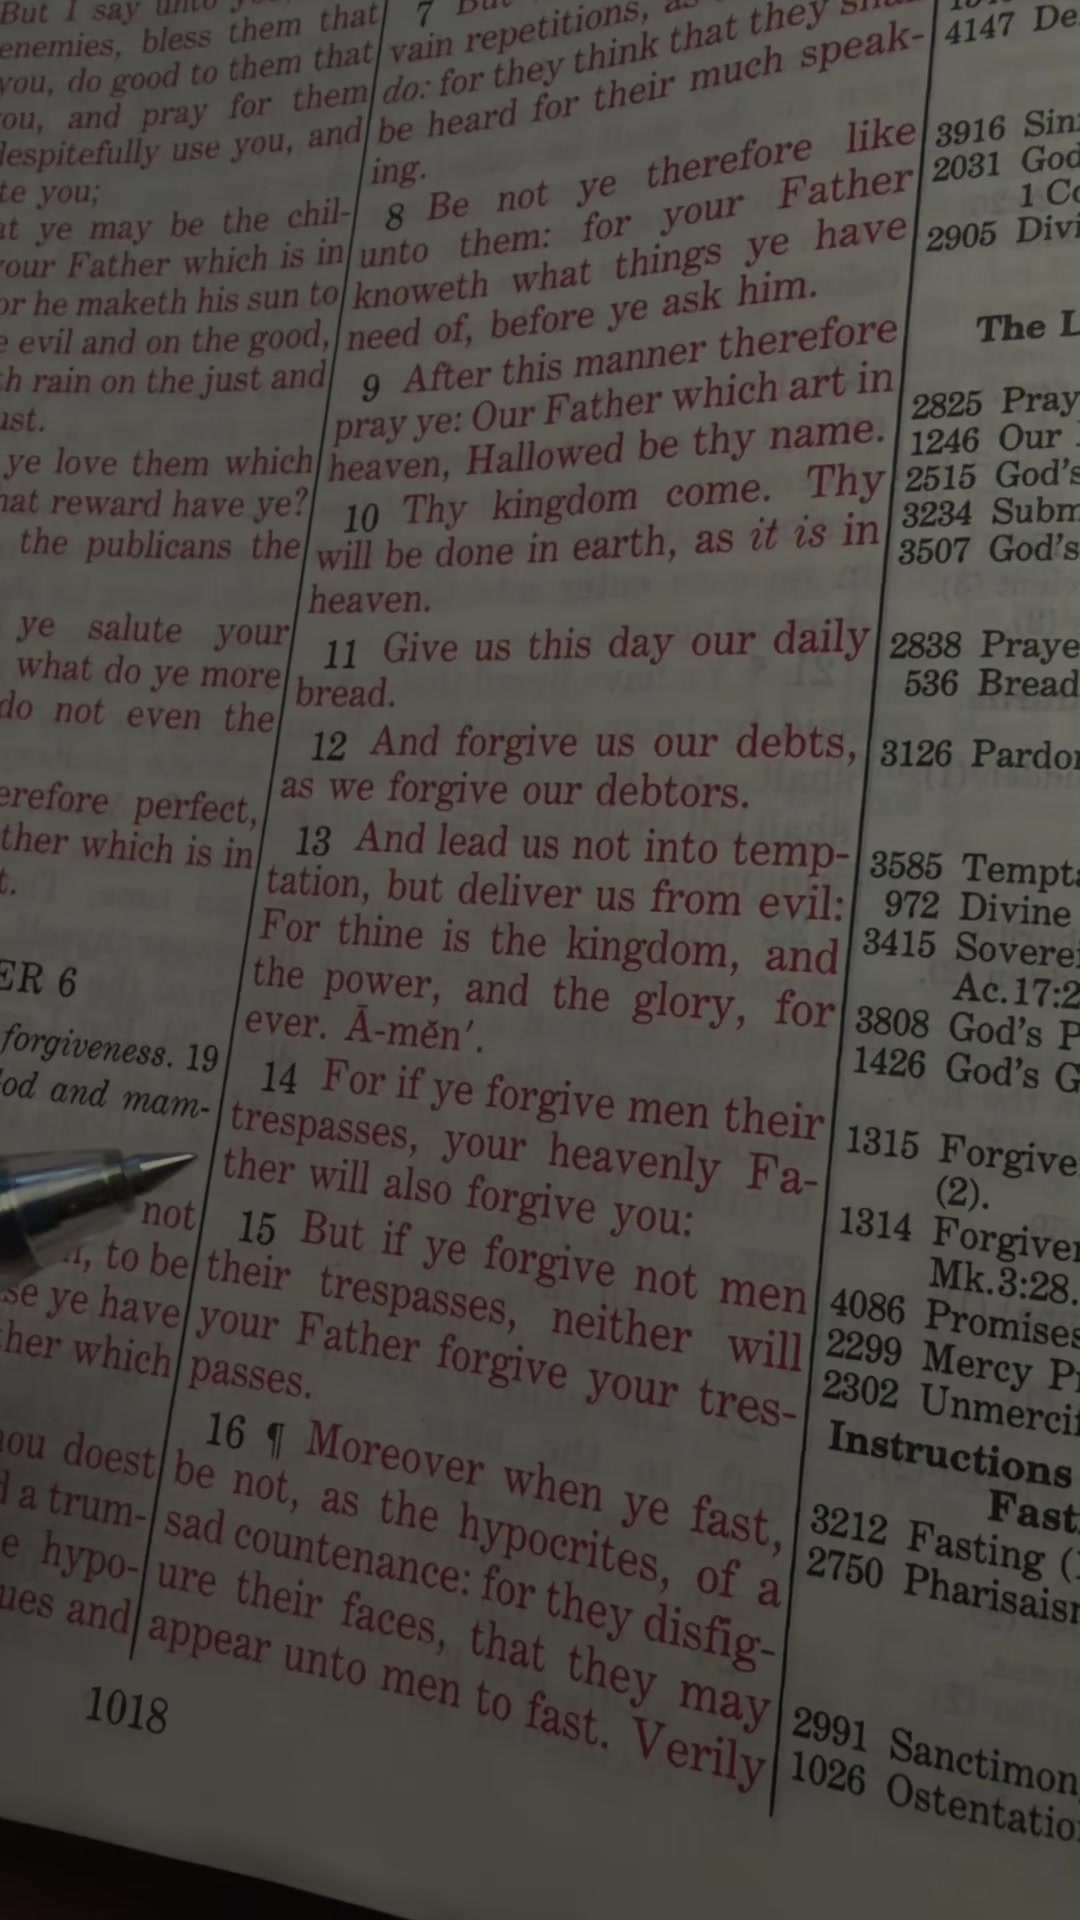 But I say unto
enemies, bless them that
you, do good to them that
and pray for them
despitefully use you, and
you;
ye may be the chil-
your Father which is in
he maketh his sun to
evil and on the good,
rain on the just and
ye love them which
reward have ye?
the publicans the
ye salute your
what do ye more
do not even the
perfect,
which is in
6
forgiveness. 19
and mam-
not
to be
ye have
which
doest
a trum-
hypo-
and
1018
7
vain repetitions,
do: for they think that they
be heard for their much speak-
ing.
8 Be not ye therefore like
unto them: for your Father
knoweth what things ye have
need of, before ye ask him.
9 After this manner therefore
pray ye: Our Father which art in
heaven, Hallowed be thy name.
10 Thy kingdom come. Thy
will be done in earth, as it is in
heaven.
11 Give us this day our daily
bread.
12 And forgive us our debts,
as we forgive our debtors.
13 And lead us not into temp-
tation, but deliver us from evil:
For thine is the kingdom, and
the power, and the glory, for
ever. Ā-mĕn′.
14 For if ye forgive men their
trespasses, your heavenly Fa-
ther will also forgive you:
15 But if ye forgive not men
their trespasses, neither will
your Father forgive your tres-
passes.
16 ¶ Moreover when ye fast,
be not, as the hypocrites, of a
sad countenance: for they disfig-
ure their faces, that they may
appear unto men to fast. Verily
4147 De
3916 Sin
2031 God
1 Co
2905 Divi
The L
2825 Pray
1246 Our
2515 God's
3234 Subm
3507 God's
2838 Praye
536 Bread
3126 Pardo
3585 Tempt
972 Divine
3415 Sovere
Ac.17:2
3808 God's P
1426 God's G
1315 Forgive
(2).
1314 Forgive
Mk.3:28.
4086 Promises
2299 Mercy P
2302 Unmerci
Instructions
Fast
3212 Fasting (
2750 Pharisais
2991 Sanctimon
1026 Ostentatio